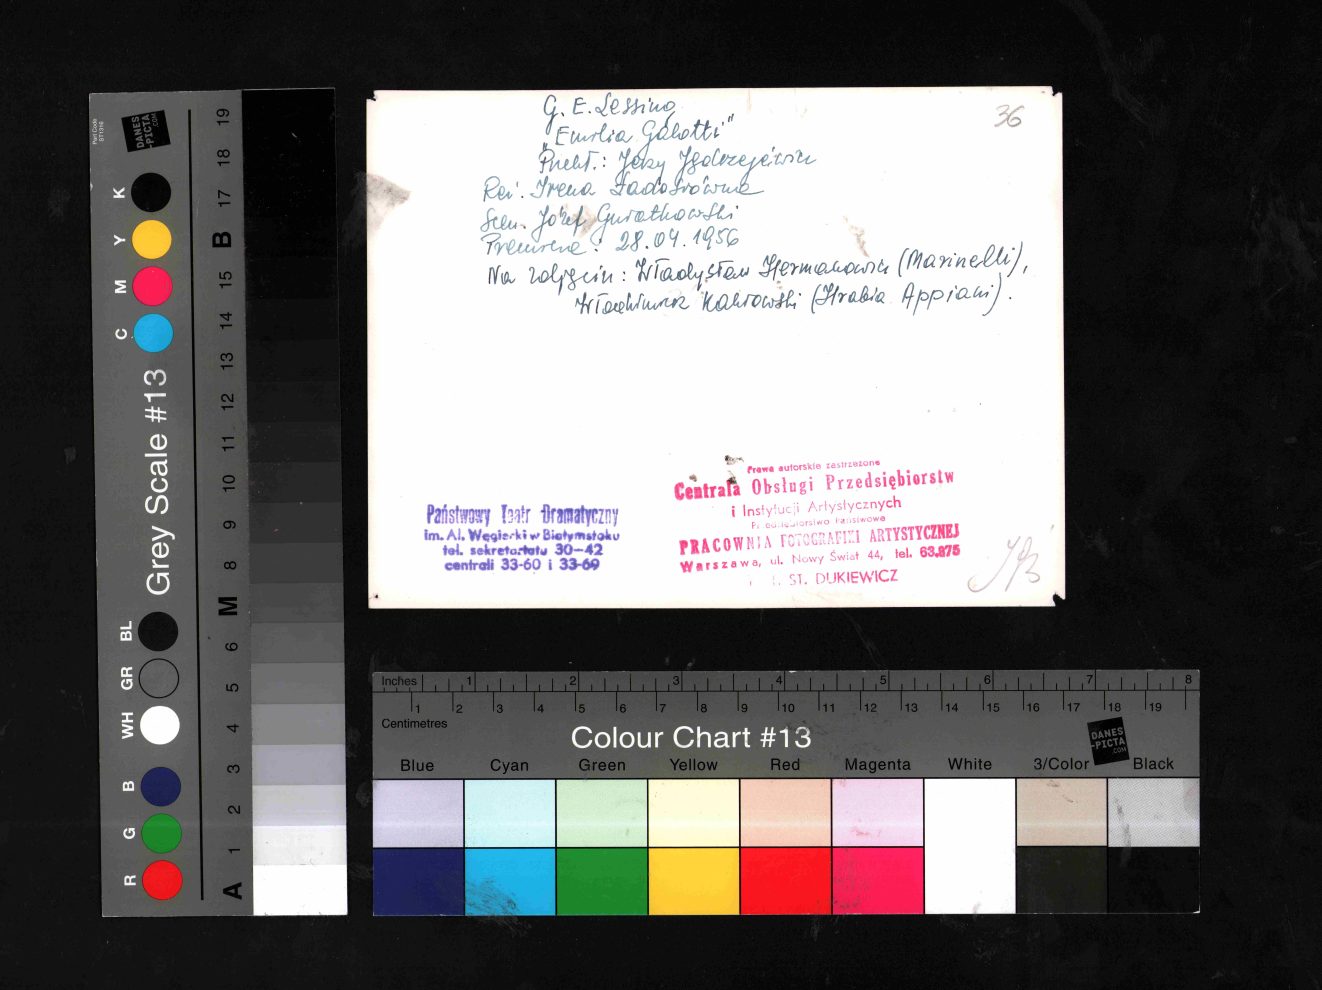 G. E. Lessing
„Emilia Galotti"
Przekł.: Jerzy Jędrzejewicz
Reż. Irena Ładosiówna
Scen. Józef Gwiazdkowski
Premiera: 28.04.1956
Na zdjęciu: Władysław Hermanowicz (Marinelli),
Włodzimierz (Hrabia Appiani).
36
Państwowy Teatr Dramatyczny
im. Al. Węgierki w Białymstoku
tel. sekretariatu 30-42
centrali 33-60 i 33-69
Prawa autorskie zastrzeżone
Centrala Obsługi Przedsiębiorstw
i Instytucji Artystycznych
Przedsiębiorstwo Państwowe
PRACOWNIA FOTOGRAFIKI ARTYSTYCZNEJ
Warszawa, ul. Nowy Świat 44, tel. 63.875
ST. DUKIEWICZ
Part Code
ST1316
DANES
-PICTA
.COM
Grey Scale #13
K
Y
M
C
BL
GR
WH
B
G
R
19
18
17
B
15
14
13
12
11
10
9
8
M
6
5
4
3
2
1
A
Inches 1 2 3 4 5 6 7 8
1 2 3 4 5 6 7 8 9 10 11 12 13 14 15 16 17 18 19
Centimetres
Colour Chart #13
DANES
-PICTA
.COM
Blue Cyan Green Yellow Red Magenta White 3/Color Black